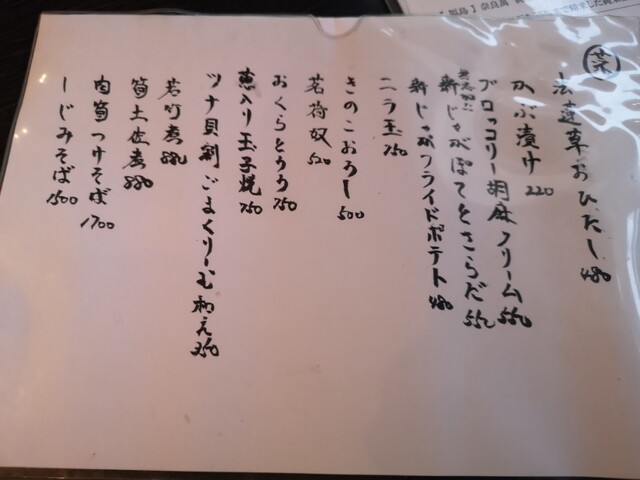 菜
法蓮草おひたし 480
かぶ漬け 220
ブロッコリー胡麻クリーム 550
新じゃがぽてとさらだ 550
新じゃがフライドポテト 480
ニラ玉 750
きのこおろし 500
茗荷奴 520
おくらとろろ 750
葱入り玉子焼 750
ツナ貝割ごまくりーむ和え 350
若竹煮 880
筍土佐煮 880
肉筍つけそば 1700
しじみそば 1500